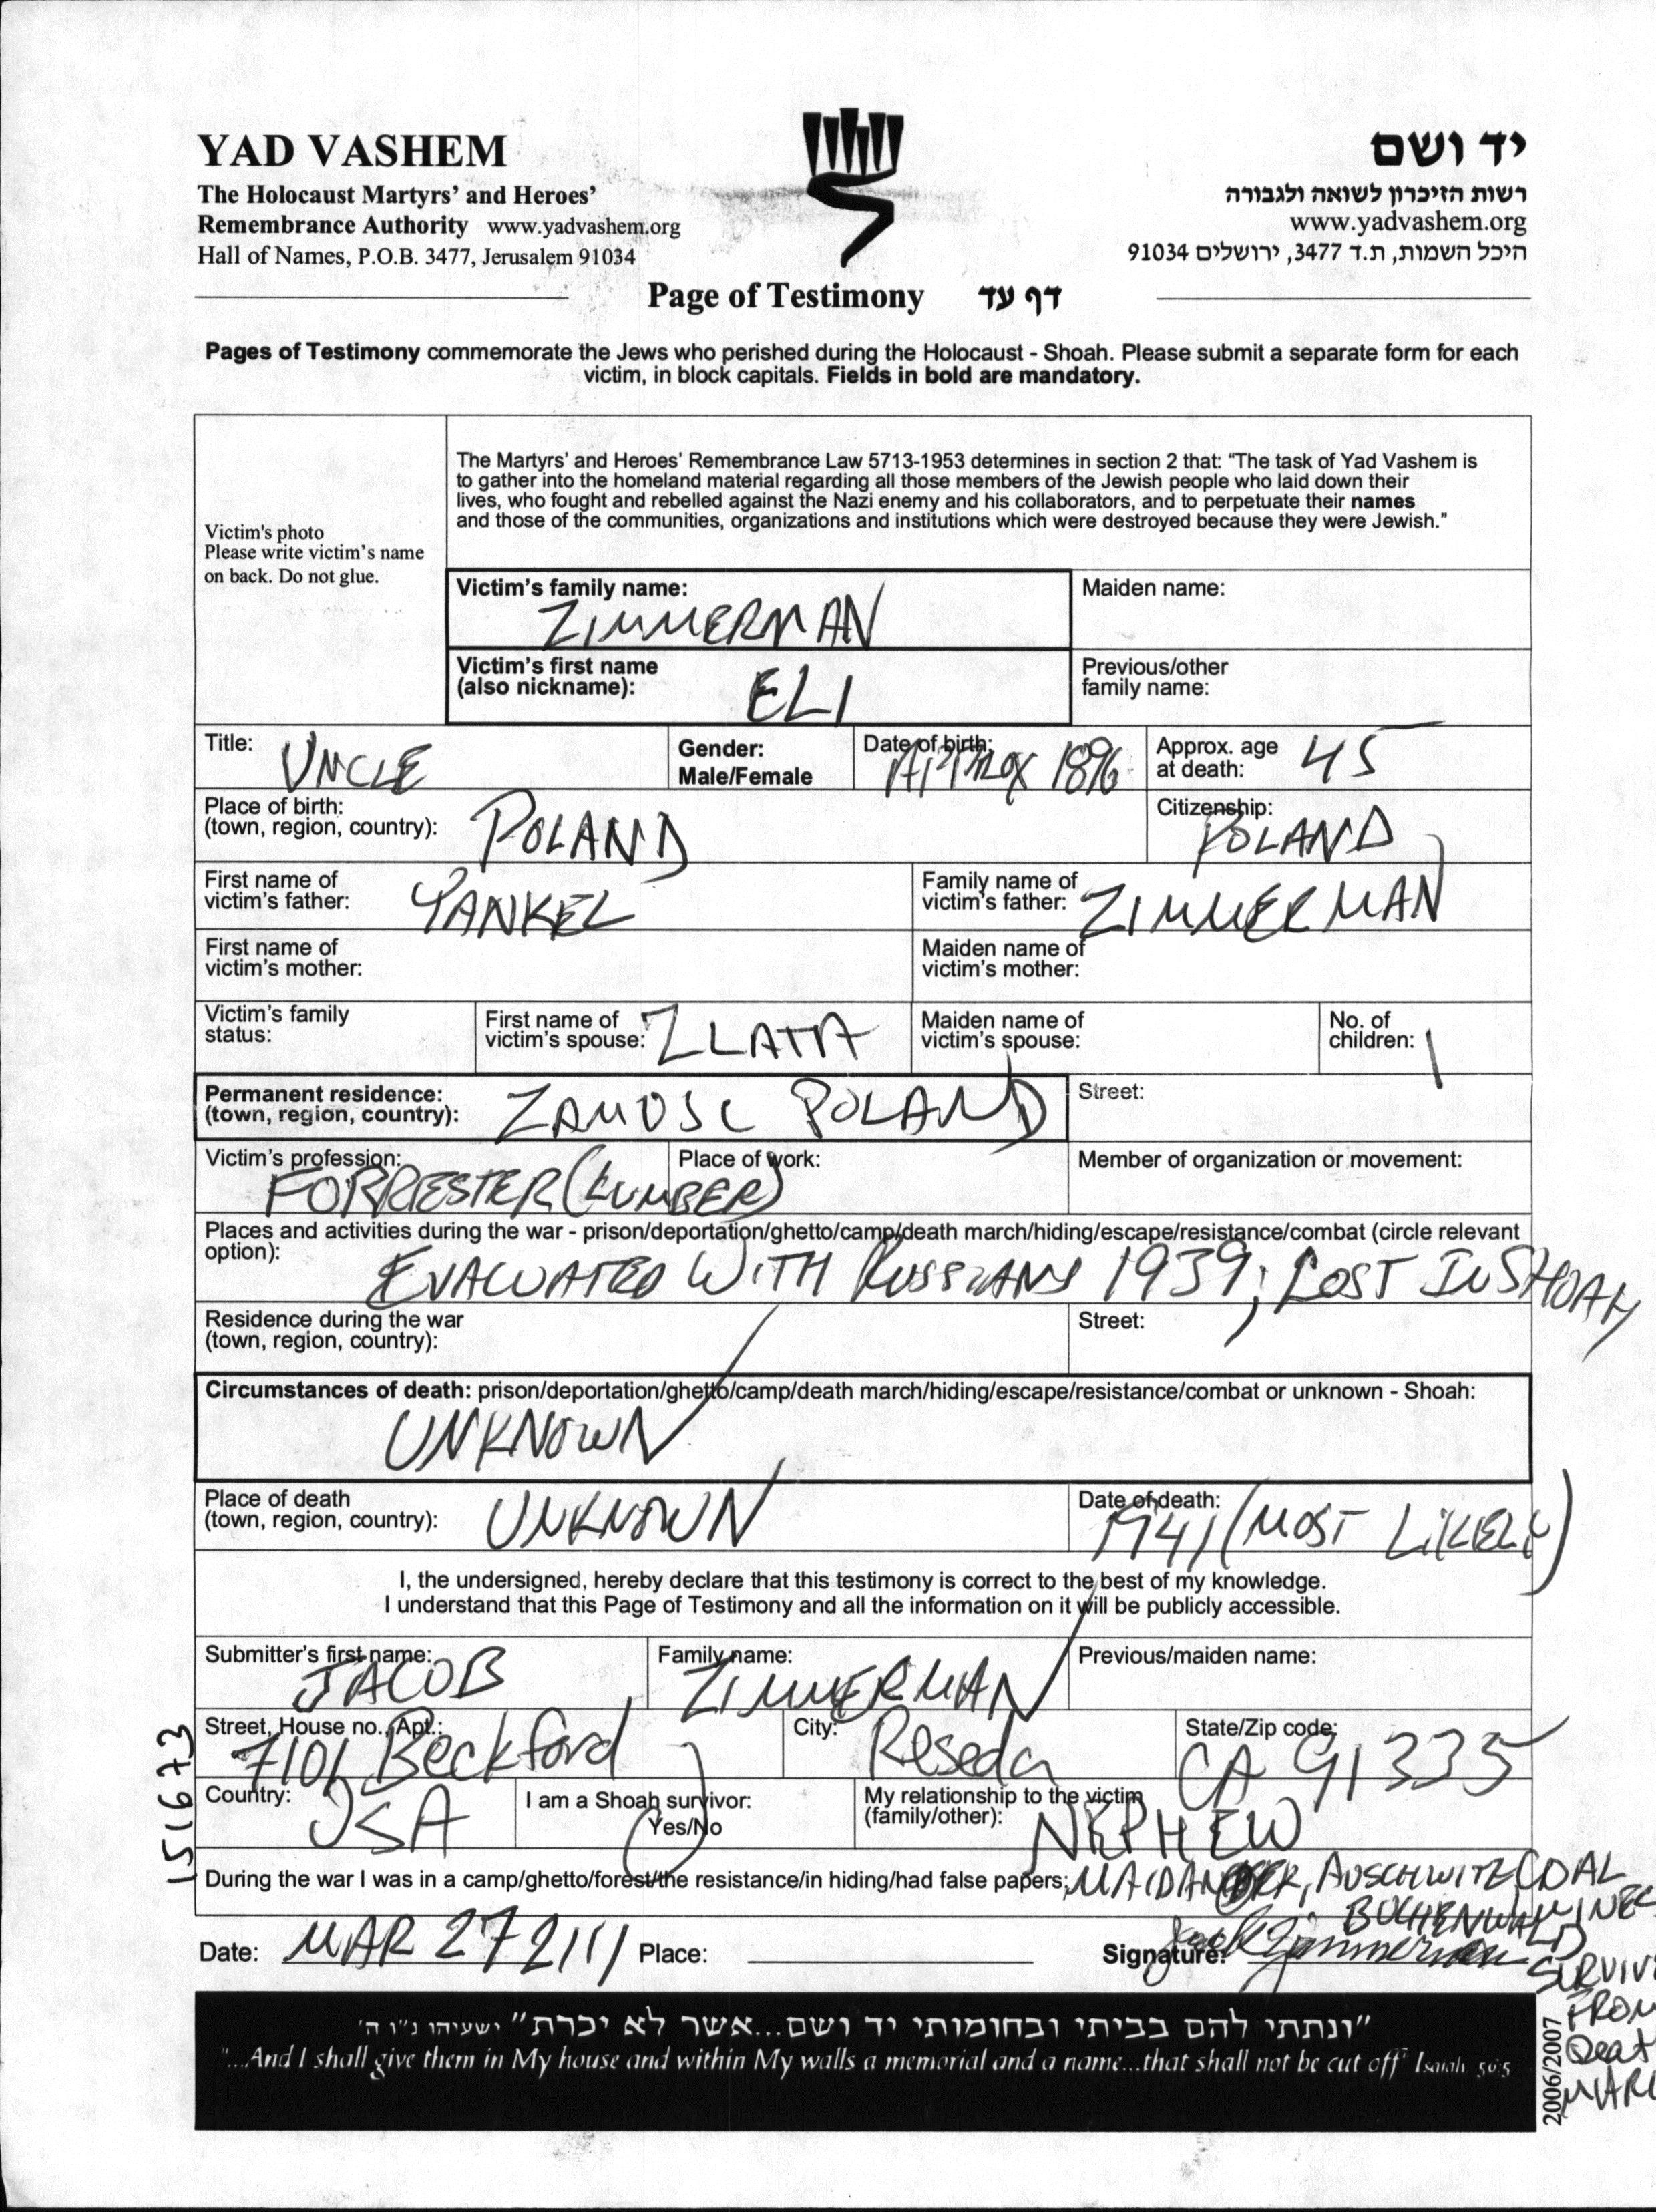 YAD VASHEM
The Holocaust Martyrs' and Heroes'
Remembrance Authority www.yadvashem.org
Hall of Names, P.O.B. 3477, Jerusalem 91034
יד ושם
רשות הזיכרון לשואה ולגבורה
www.yadvashem.org
היכל השמות, ת.ד 3477, ירושלים 91034
Page of Testimony דף עד
Pages of Testimony commemorate the Jews who perished during the Holocaust - Shoah. Please submit a separate form for each
victim, in block capitals. Fields in bold are mandatory.
Victim's photo
Please write victim's name
on back. Do not glue.
The Martyrs' and Heroes' Remembrance Law 5713-1953 determines in section 2 that: "The task of Yad Vashem is
to gather into the homeland material regarding all those members of the Jewish people who laid down their
lives, who fought and rebelled against the Nazi enemy and his collaborators, and to perpetuate their names
and those of the communities, organizations and institutions which were destroyed because they were Jewish."
Victim's family name: ZIMMERMAN
Maiden name:
Victim's first name
(also nickname): ELI
Previous/other
family name:
Title: UNCLE
Gender:
Male/Female
Date of birth: APPROX 1896
Approx. age
at death: 45
Place of birth:
(town, region, country): POLAND
Citizenship: POLAND
First name of
victim's father: YANKEL
Family name of
victim's father: ZIMMERMAN
First name of
victim's mother:
Maiden name of
victim's mother:
Victim's family
status:
First name of
victim's spouse: ZLATA
Maiden name of
victim's spouse:
No. of
children: 1
Permanent residence:
(town, region, country): ZAMOSC POLAND
Street:
Victim's profession: FORRESTER (LUMBER)
Place of work:
Member of organization or movement:
Places and activities during the war - prison/deportation/ghetto/camp/death march/hiding/escape/resistance/combat (circle relevant
option): EVACUATED WITH RUSSIANS 1939; LOST IN SHOAH
Residence during the war
(town, region, country):
Street:
Circumstances of death: prison/deportation/ghetto/camp/death march/hiding/escape/resistance/combat or unknown - Shoah:
UNKNOWN
Place of death
(town, region, country): UNKNOWN
Date of death: 1941 (MOST LIKELY)
I, the undersigned, hereby declare that this testimony is correct to the best of my knowledge.
I understand that this Page of Testimony and all the information on it will be publicly accessible.
Submitter's first name: JACOB
Family name: ZIMMERMAN
Previous/maiden name:
Street, House no., Apt.: 7101 Beckford
City: Reseda
State/Zip code: CA 91335
Country: USA
I am a Shoah survivor:
Yes/No
My relationship to the victim
(family/other): NEPHEW
During the war I was in a camp/ghetto/forest/the resistance/in hiding/had false papers: MAIDANEK, AUSCHWITZ COAL
MINES
BUCHENWALD
Date: MAR 27 2111
Place:
Signature: Jack Zimmerman
SURVIV
FROM
Deat
MAR
151673
"ונתתי להם בביתי ובחומותי יד ושם...אשר לא יכרת" ישעיהו נ"ו ה'
"...And I shall give them in My house and within My walls a memorial and a name...that shall not be cut off" Isaiah 56:5
2006/2007